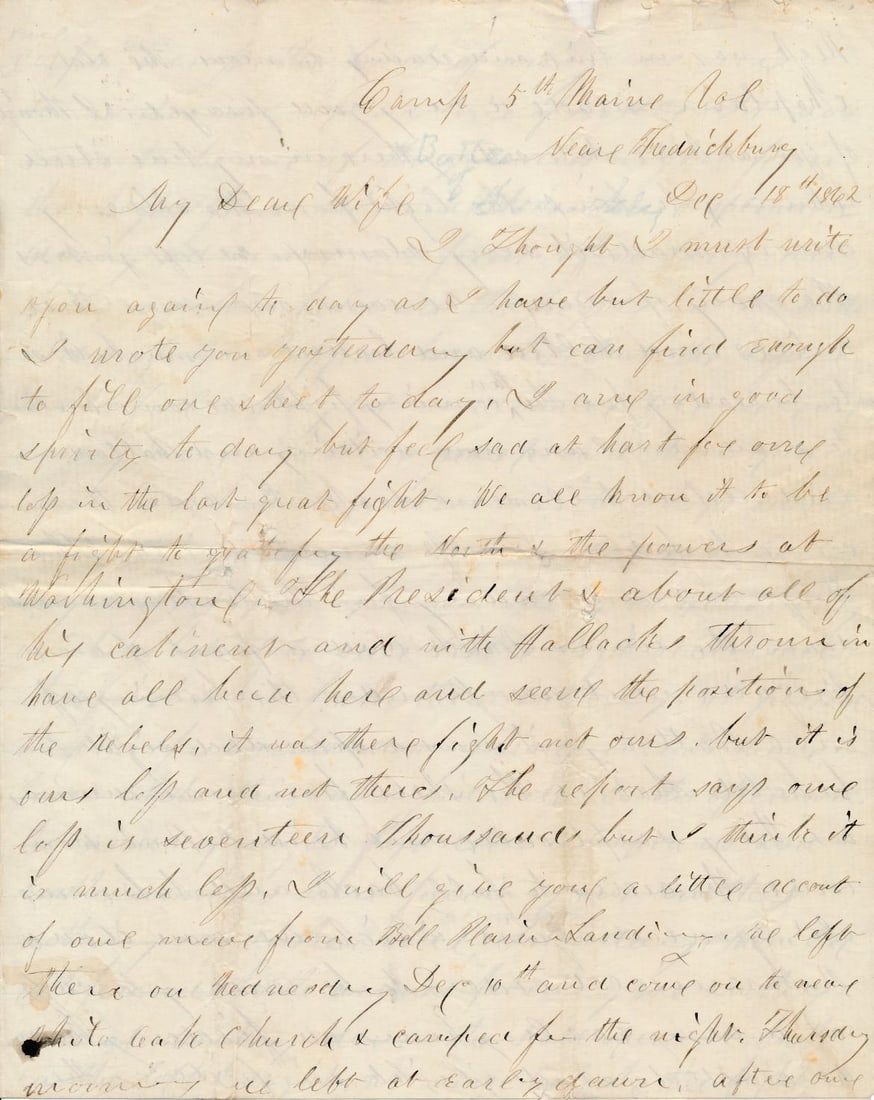 Camp 5th Maine Vol
Neare Fredricksburg
My Deare Wife Dec 18th 1862
I Thought I must write
you againe to day as I have but little to do
I wrote you yesterday but can find enough
to fill one sheet to day, I am in good
spirits to day but feel sad at hart for oure
loss in the last great fight. We all know it to be
a fight to gratefey the North & the powers at
Washington. The President & about all of
his cabinent and with Hallacks thrown in
have all been here and seene the position of
the Rebels, it was there fight not ours. but it is
ours loss and not theres. The report says oure
loss is seventeen Thoussands but I think it
is much less, I will give you a little accout
of oure move from Bell Plain Landing. we left
there on Wednesday Dec 10th and come on to neare
White Oak Church & camped for the night. Thursday
morning we left at early dawn, after oure